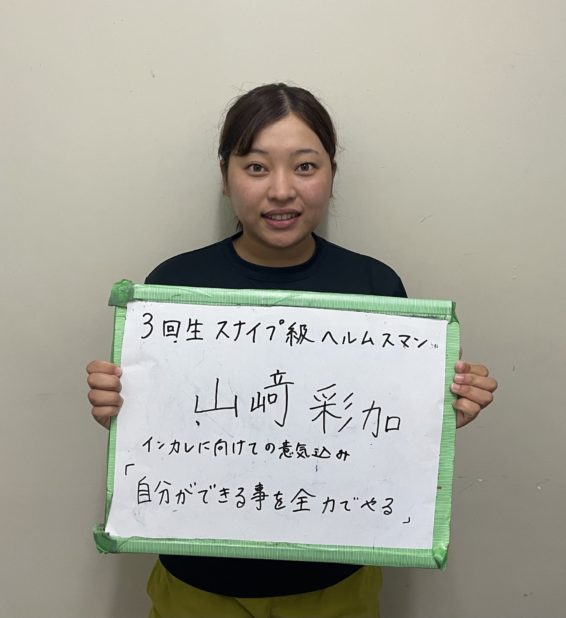 3回生 スナイプ級 ヘルムスマン
山﨑 彩加
インカレに向けての意気込み
「自分ができる事を全力でやる」